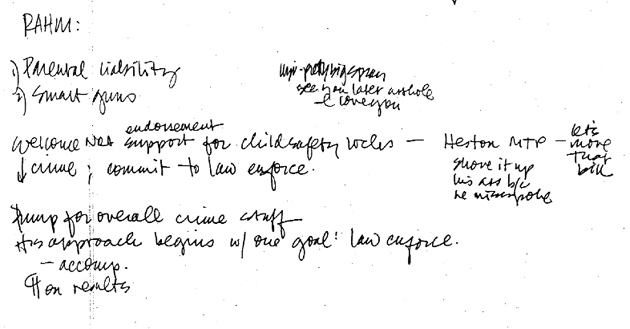 RAHM:
1) Parental liability
2) Smart guns
see you later asshole
- I love you
endorsement
Welcome support for child safety locks —
↓ crime; commit to law enforce.
Heston MTP —
shove it up
his ass b/c
he misspoke
let's
move
that
bill
for overall crime stuff
His approach begins w/ one goal: law enforce.
— accomp.
¶ on results